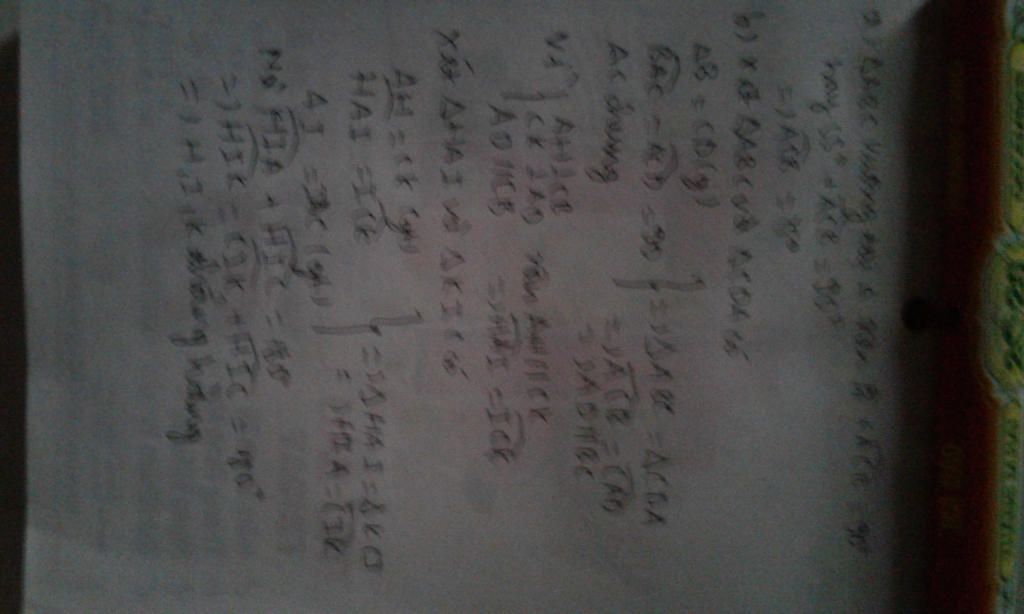 a) ΔABC vuông tại A nên B + ACB = 90°
hay 55° + ACB = 90°
=> ACB = 35°
b) Xét ΔABC và ΔCDA có
AB = CD (gt)
BAC = ACD = 90
AC chung
} => ΔABC = ΔCDA
=> ACB = CAD
=> AD // BC
Vì { AH ⊥ CB
CK ⊥ AD
AD // CB
nên AH // CK
=> HAI = ICK
Xét ΔHAI và ΔKIC có
AH = CK
HAI = ICK
AI = IC (gt)
} => ΔHAI = ΔKCI
=> HIA = CIK
Mà HIA + HIC = 180
=> HIK = CIK + HIC = 180°
=> H, I, K thẳng hàng